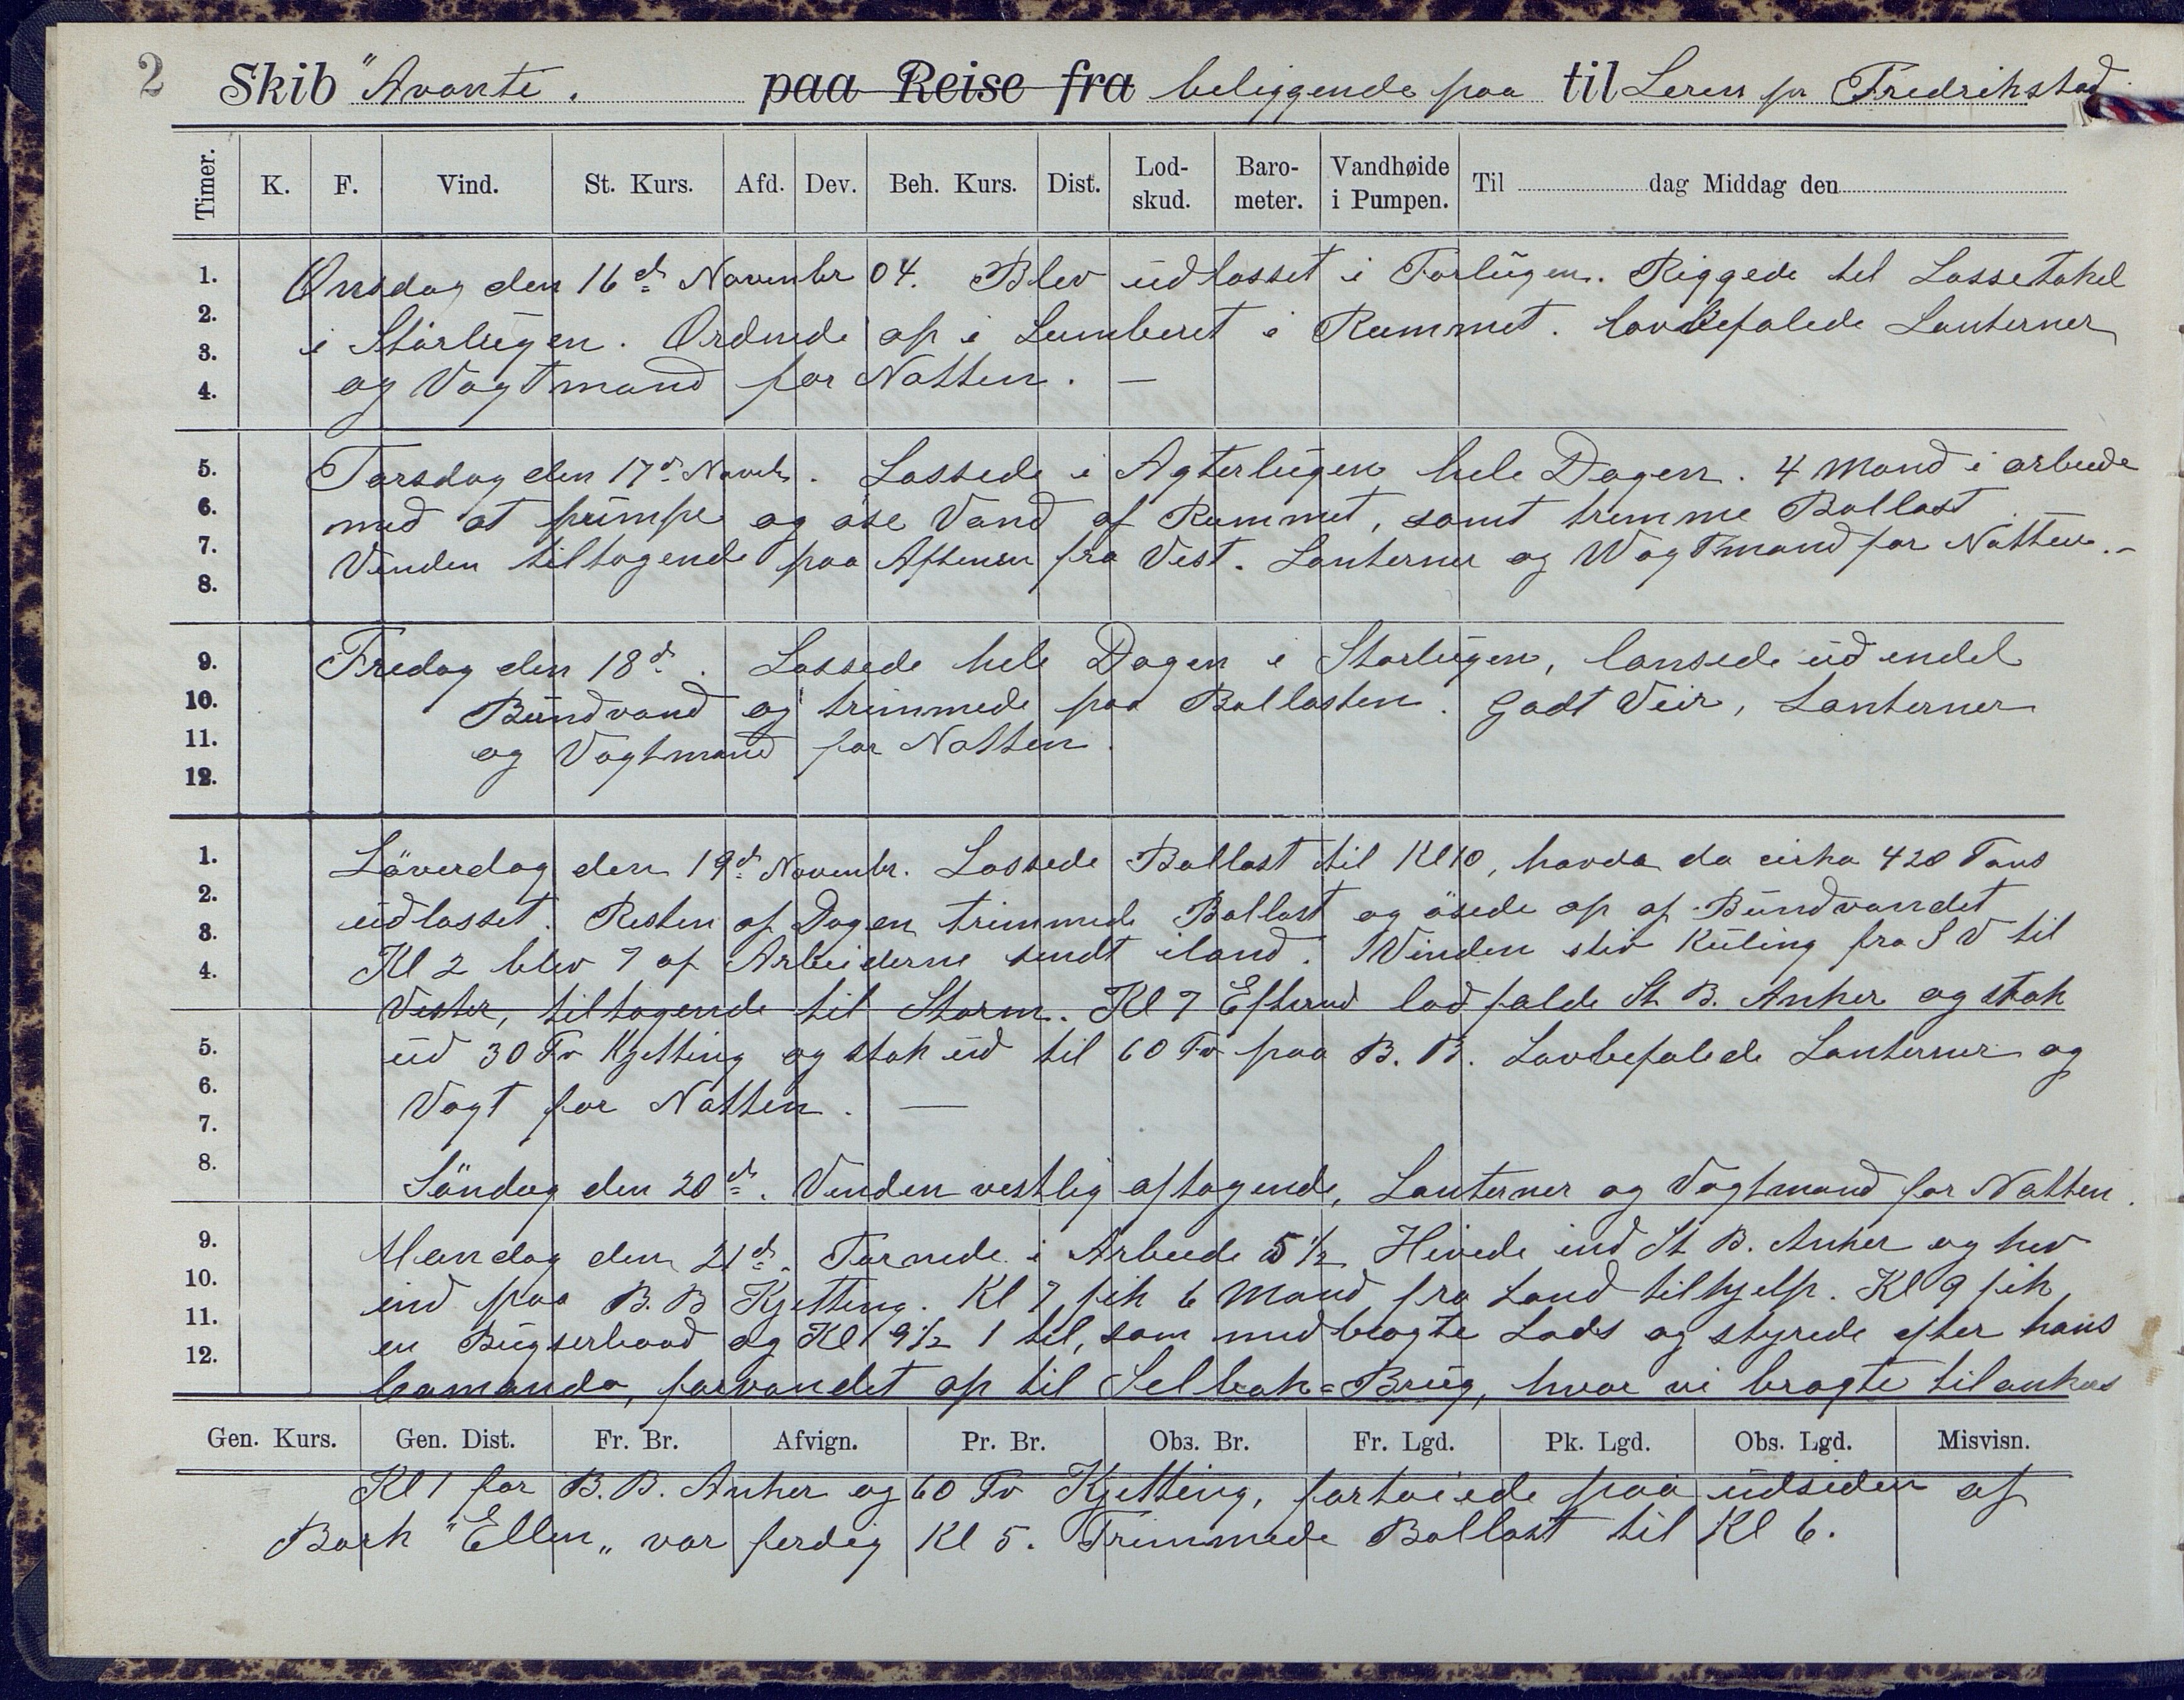 2
Skib "Avante". paa Reise fra beliggende paa til Leren pr Fredrikstad
Timer. K. F. Vind. St. Kurs. Afd. Dev. Beh. Kurs. Dist. Lod-skud. Baro-meter. Vandhøide i Pumpen. Til dag Middag den
1. Onsdag den 16d Novembr 04. Blev udlosset i Forlugen. Riggede til Lossetakel
2. i Storlugen. Ordnede op i Lumberet i Rummet. Lovbefalede Lanterner
3. og Vagtmand for Natten. —
4.
5. Torsdag den 17d Novch. Lossede i Agterlugen hele Dagen. 4 Mand i arbeide
6. med at pumpe og öse Vand af Rummet, samt trimme Ballast
7. Vinden tiltagende paa Aftenen fra Vest. Lanterner og Wagtmand for Natten. -
8.
9. Fredag den 18d. Lossede hele Dagen i Storlugen, lansede ud endel
10. Bundvand og trimmede paa Ballasten. Godt Veir, Lanterner
11. og Vagtmand for Natten.
12.
1. Löverdag den 19d Novembr. Lossede Ballast til Kl 10, havde da cirka 420 Tons
2. udlosset. Resten af Dagen trimmede Ballast og ösede op af Bundvandet
3. Kl 2 blev 7 af Arbeiderne sendt iland. Vinden stiv Kuling fra SV til
4. Vester, tiltagende til Storm. Kl 7 Efterm lod falde St B. Anker og stak
5. ud 30 Fv Kjetting og stak ud til 60 Fv paa B. B. Lovbefalede Lanterner og
6. Vagt for Natten. —
7.
8. Söndag den 20d. Vinden vestlig aftagende, Lanterner og Vagtmand for Natten.
9. Mandag den 21d. Tornede i Arbeide 5 1/2 Hivede ind St B. Anker og hev
10. ind paa B. B Kjetting. Kl 7 fik 6 Mand fra Land tilhjelp. Kl 9 fik
11. en Bugserbaad og Kl 9 1/2 1 til, som medbragte Lods og styrede efter hans
12. komando, farvandet op til Selbak=Brug, hvor vi bragte tilankers
Gen. Kurs. Gen. Dist. Fr. Br. Afvign. Pr. Br. Obs. Br. Fr. Lgd. Pk. Lgd. Obs. Lgd. Misvisn.
Kl 1 for B. B. Anker og 60 Fv Kjetting, fortöiede paa udsiden af
Bark "Ellen" var ferdig Kl 5. Trimmede Ballast til Kl 6.